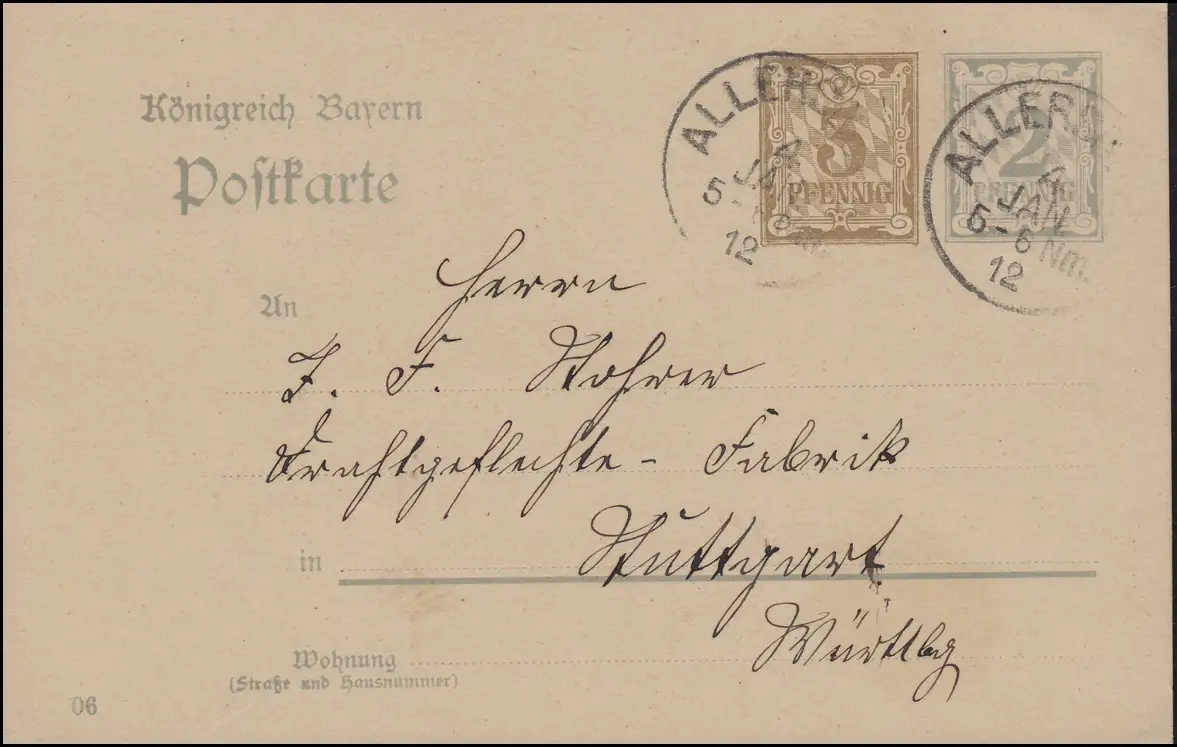 Königreich Bayern
Postkarte
3
PFENNIG
2
PFENNIG
ALLER
5 JAN
12
ALLER
5 JAN
6 Nm.
12
An
Herrn
F. Stohrer
Drahtgeflechte - Fabrik
in
Stuttgart
Württbg
Wohnung
(Straße und Hausnummer)
06